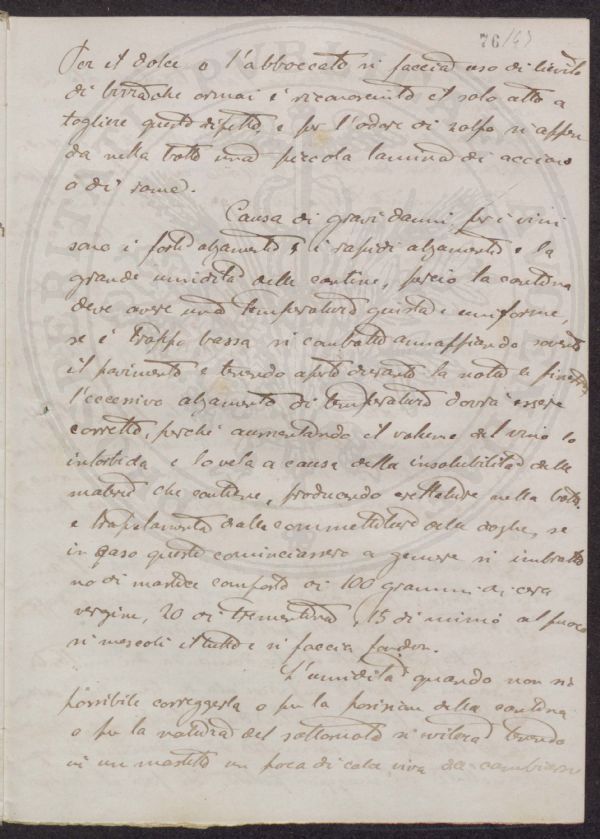 76/43
Per il dolce o l'abboccato si faccia uso di lievito
di birra che ormai è riconosciuto il solo atto a
togliere questo difetto, e per l'odore di zolfo si appen
da nella botte una piccola lamina di acciaio
o di rame.
Causa di gravi danni per i vini
sono i forti alzamenti, i rapidi alzamenti e la
grande umidità delle cantine, perciò la cantina
deve avere una temperatura giusta e uniforme,
se è troppo bassa si combatte annaffiando sovente
il pavimento e tenendo aperto durante la notte le finestre,
l'eccessivo alzamento di temperatura dovrà essere
corretto, perchè aumentando il volume del vino lo
intorbida e lo vela a causa della insolubilità delle
materie che contiene, producendo screpolature nella botte
e trapelamento dalle commettiture delle doghe, se
in caso queste cominciassero a gemere si imbratti
no di mastice composto di 100 grammi di cera
vergine, 20 di trementina, 15 di minio al fuoco
si mescoli il tutto e si faccia fondere.
L'umidità quando non sia
possibile correggerla o per la posizione della cantina
o per la natura del sottosuolo si eviterà tenendo
in un mastello un poca di calce viva da cambiarsi